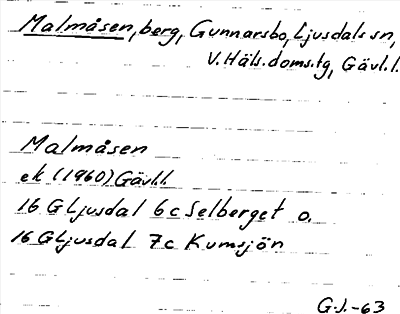 Malmåsen, berg, Gunnarsbo, Ljusdals sn,
V. Häls. doms.tg, Gävl.l.
Malmåsen
ek (1960) Gävl.l.
16 G Ljusdal 6c Selberget o.
16 G Ljusdal 7c Kumsjön
G.J.-63